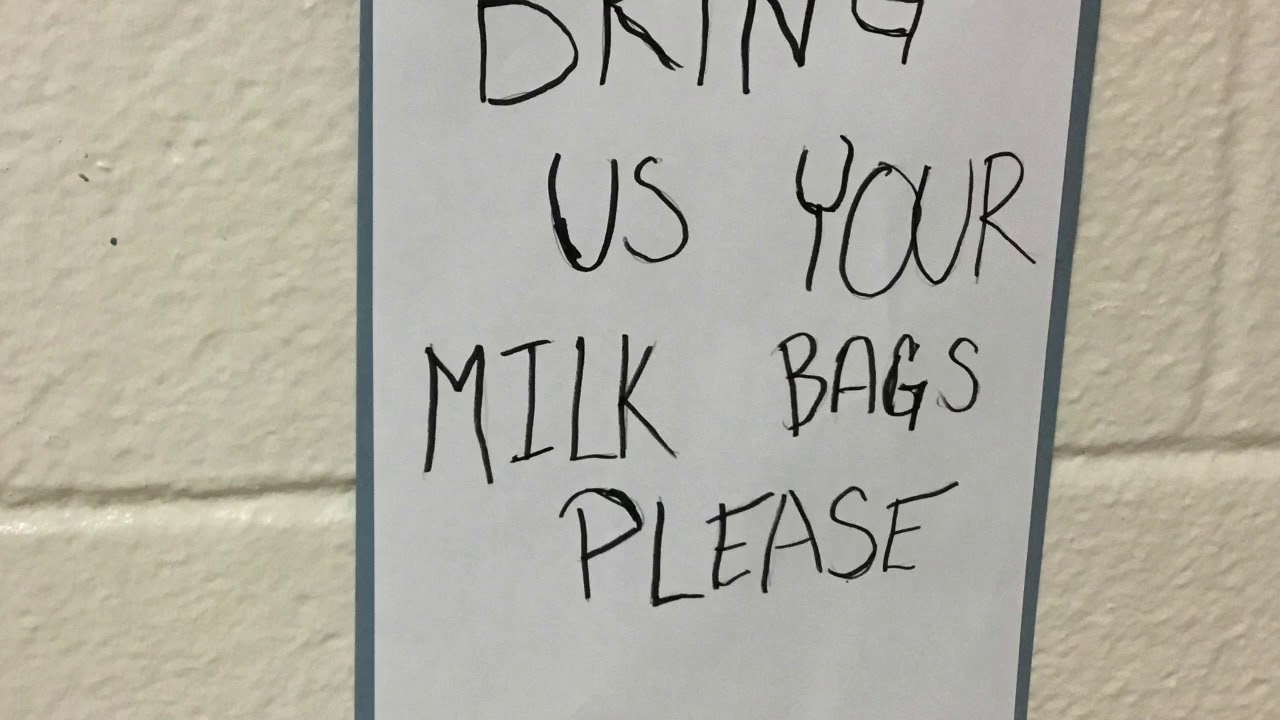 BRING
US YOUR
MILK BAGS
PLEASE